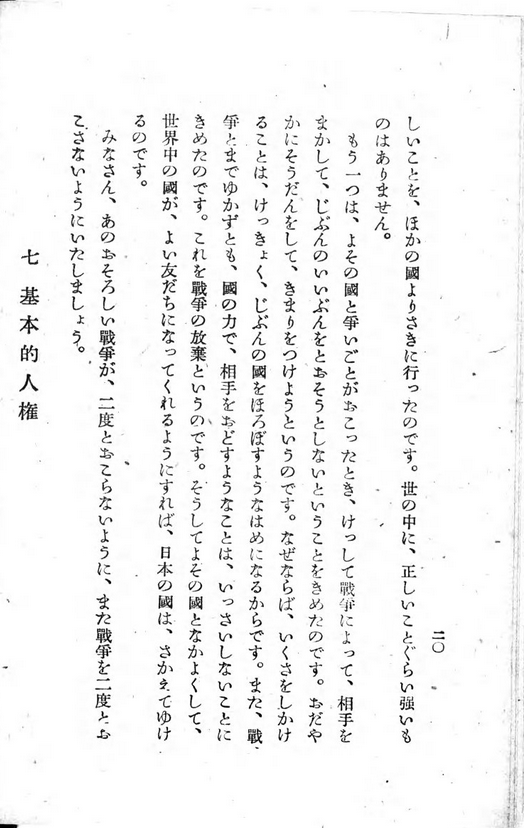 二〇
しいことを、ほかの國よりさきに行ったのです。世の中に、正しいことぐらい强いも
のはありません。
もう一つは、よその國と爭いごとがおこったとき、けっして戰爭によって、相手を
まかして、じぶんのいいぶんをとおそうとしないということをきめたのです。おだや
かにそうだんをして、きまりをつけようというのです。なぜならば、いくさをしかけ
ることは、けっきょく、じぶんの國をほろぼすようなはめになるからです。また、戰
爭とまでゆかずとも、國の力で、相手をおどすようなことは、いっさいしないことに
きめたのです。これを戰爭の放棄というのです。そうしてよその國となかよくして、
世界中の國が、よい友だちになってくれるようにすれば、日本の國は、さかえてゆけ
るのです。
みなさん、あのおそろしい戰爭が、二度とおこらないように、また戰爭を二度とお
こさないようにいたしましょう。
七 基本的人権